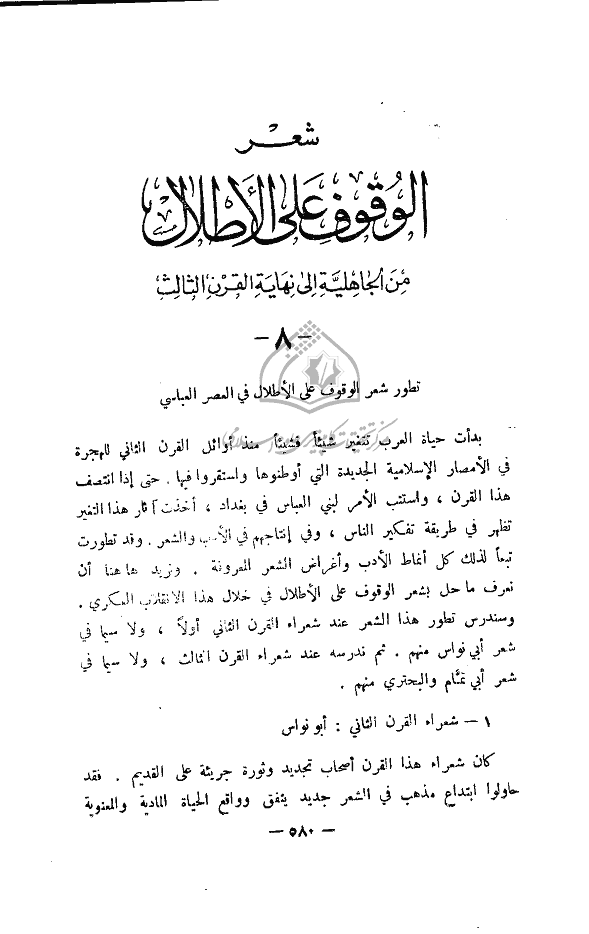 شعر
الوُقوف عَلى الأَطلال
مِنَ الجَاهِليَّة إلى نِهايَة القَرْن الثَالِث
– ٨ –
تطور شعر الوقوف على الأطلال في العصر العباسي
بدأت حياة العرب تتغير شيئاً فشيئاً منذ أوائل القرن الثاني للهجرة
في الأمصار الإسلامية الجديدة التي أوطنوها واستقروا فيها . حتى إذا انتصف
هذا القرن ، واستتب الأمر لبني العباس في بغداد ، أخذت آثار هذا التغير
تظهر في طريقة تفكير الناس ، وفي إنتاجهم في الأدب والشعر . وقد تطورت
تبعاً لذلك كل أنماط الأدب وأغراض الشعر المعروفة . ونريد هاهنا أن
نعرف ما حل بشعر الوقوف على الأطلال في خلال هذا الانقلاب الفكري .
وسندرس تطور هذا الشعر عند شعراء القرن الثاني أولاً ، ولا سيما في
شعر أبي نواس منهم . ثم ندرسه عند شعراء القرن الثالث ، ولا سيما في
شعر أبي تمَّام والبحتري منهم .
١ – شعراء القرن الثاني : أبو نواس
كان شعراء هذا القرن أصحاب تجديد وثورة جريئة على القديم . فقد
حاولوا ابتداع مذهب في الشعر جديد يتفق وواقع الحياة المادية والمعنوية
– ٥٨٠ –